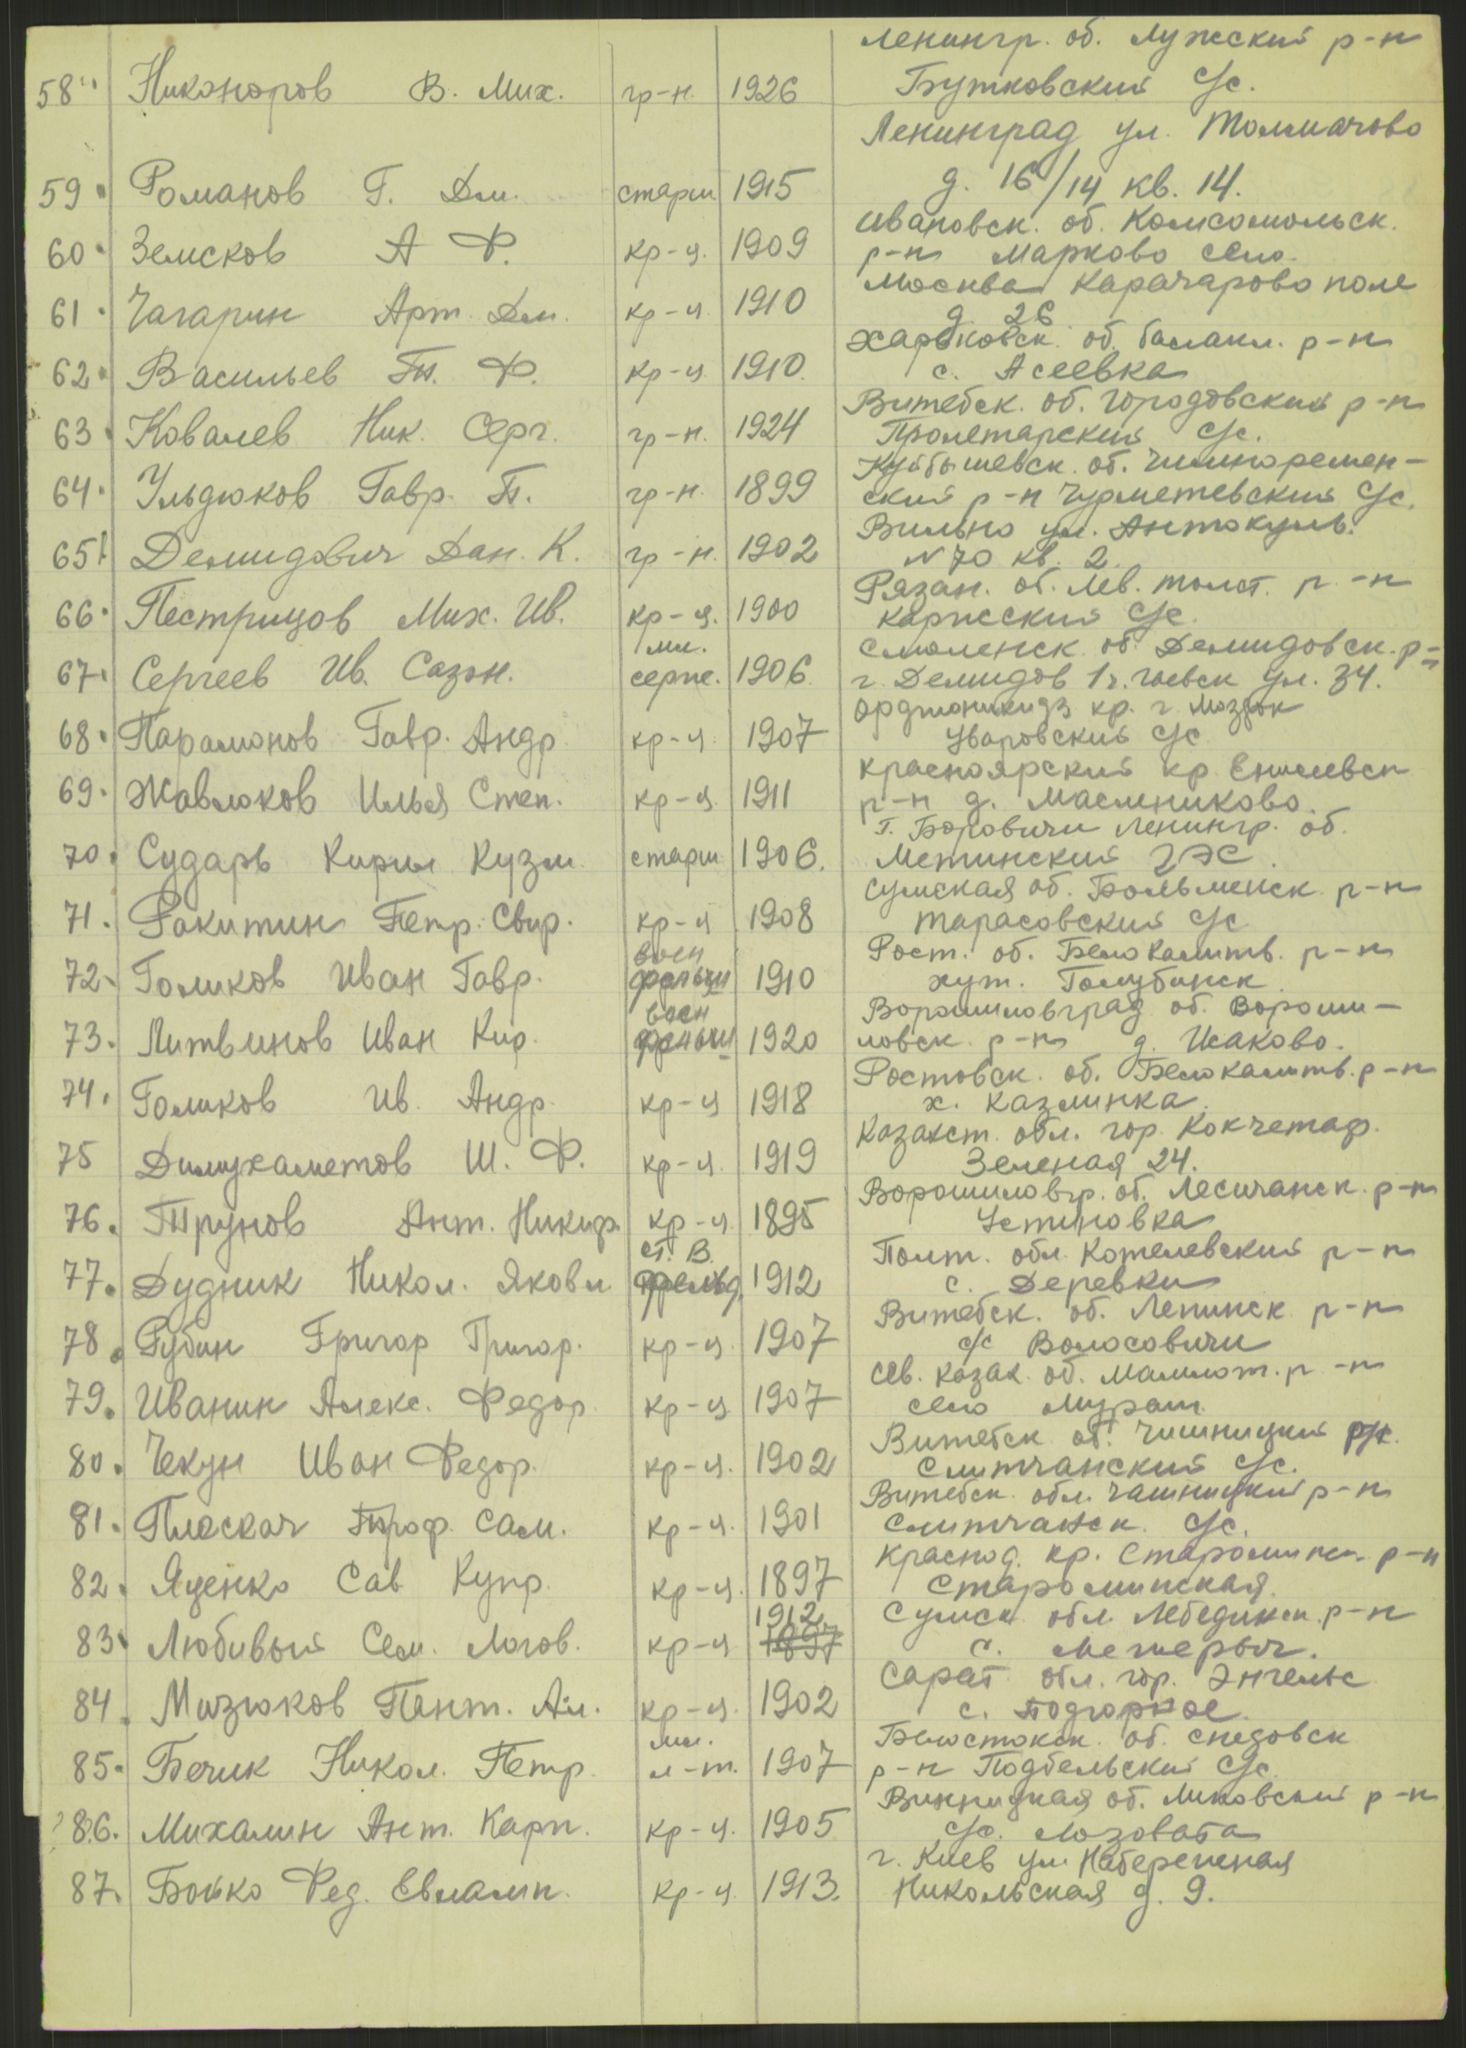 Ленингр. об. Лужский р-н
58 Никоноров В. Мих. гр-н. 1926 Бутковский с/с.
Ленинград ул. Толмачово
59 Романов Г. Дм. старш 1915 д. 16/14 кв. 14.
Ивановск. об. Комсомольск.
60 Земсков А Ф. кр-ц. 1909 р-н Марково село.
Москва Карачарово поле
61 Чагарин Арт. Дм. кр-ц. 1910 д. 26
Харьковск. об. балакл. р-н
62 Васильев Ф. кр-ц 1910 с. Асеевка
Витебск. об. Городовский р-н
63 Ковалев Ник. Серг. гр-н. 1924 Пролетарский с/с.
Куйбышевск. об.
64 Ульдюков Гавр. П. гр-н. 1899 ский р-н с/с.
Вильно ул. Антокуль.
65 Демидович Дан. К. гр-н. 1902 N 70 кв. 2.
Рязан. об. Лев. толст. р-н
66 Пестрицов Мих. Ив. кр-ц. 1900 с/с.
мл. Смоленск об. Демидовск. р-н
67 Сергеев Ив. Сазон. серж. 1906 г. Демидов ул. 34.
Орджоникидз кр. г. Моздок
68 Парамонов Гавр. Андр кр-ц 1907 Уваровский с/с
Красноярский кр Енисевск
69 Жавлюков Илья Степ. кр-ц. 1911 р-н д. Маслниково.
г. Боровичи Ленингр. об.
70 Сударь Кирил Кузм старш 1906. Метинский ГЭС.
Сумская об. р-н
71. Ракитин Петр. Свир. кр-ц 1908 Тарасовский с/с
воен Рост. об. Белокалитв. р-н
72 Голиков Иван Гавр. 1910 хут. Голубинск.
воен Ворошиловград об. Вороши-
73. Литвинов Иван Кир. 1920 ловск. р-н д. Исаково.
Ростовск. об. Белокалитв. р-н
74. Голиков Ив. Андр. кр-ц 1918 х. Казминка.
Казахст. обл. гор. Кокчетаф.
75 Димухаметов Ш. Ф. кр-ц. 1919 Зеленая 24.
Ворошиловгр. об. Лесичанск. р-н
76. Трунов Ант. Никиф. кр-ц. 1895 Устиновка
ст. в. Полт. обл. Котелевский р-н
77. Дудник Никол. Яковл фельд. 1912 с. Деревки
Витебск. об. Лепинск р-н
78. Рубин Григор Григор. кр-ц. 1907 с/с Волосовичи
Сев. Казах. об. р-н
79. Иванин Алекс. Федор. кр-ц 1907 село
Витебск об. Чишницкий
80. Чекун Иван Федор. кр-ц. 1902 Слитчанский с/с.
Витебск. обл. Чашницкий р-н
81. Плескач Троф. Сам. кр-ц. 1901 Слитчанск. с/с.
Краснод. кр. Староминск р-н
82. Яценко Сав Купр. кр-ц. 1897 Староминская.
1912 Сумск. обл Лебединск. р-н
83 Любивый Сем. Логов. кр-ц 1897 с. Межерыч.
Сарат. обл. гор. Энгельс
84. Мизюков Пант. Ал. кр-ц. 1902 с. Подгорное.
мл. Белостокск. об. снедовск
85. Бечик Никол. Петр. л-т. 1907 р-н Подбельский с/с.
Винницкая об. р-н
86. Михалин Ант. Карп. кр-ц. 1905 с/с. Лозовата
г. Киев ул Набережная
87. Бойко Фед. Евламп. кр-ц. 1913. Никольская д. 9.